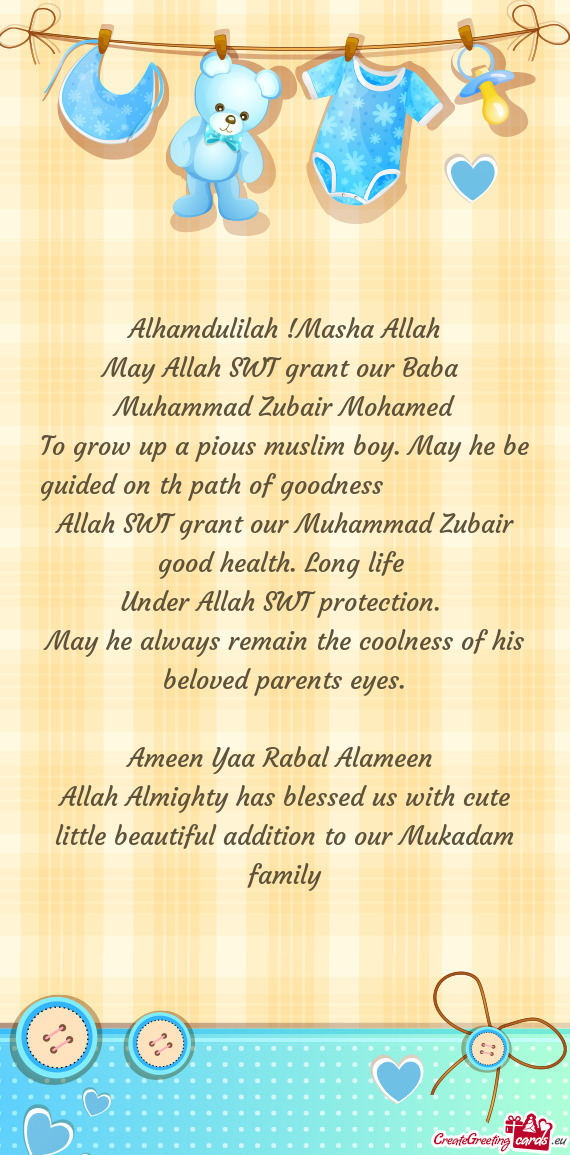 Alhamdulilah !Masha Allah
May Allah SWT grant our Baba
Muhammad Zubair Mohamed
To grow up a pious muslim boy. May he be
guided on th path of goodness
Allah SWT grant our Muhammad Zubair
good health. Long life
Under Allah SWT protection.
May he always remain the coolness of his
beloved parents eyes.
Ameen Yaa Rabal Alameen
Allah Almighty has blessed us with cute
little beautiful addition to our Mukadam
family
CreateGreeting cards .eu